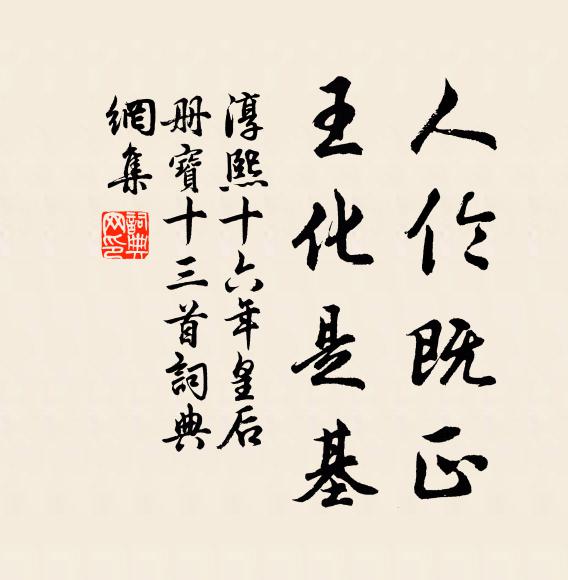 人伦既正
王化是基
淳熙十六年皇后
册寶十三首詞典
網集
詞典
网印